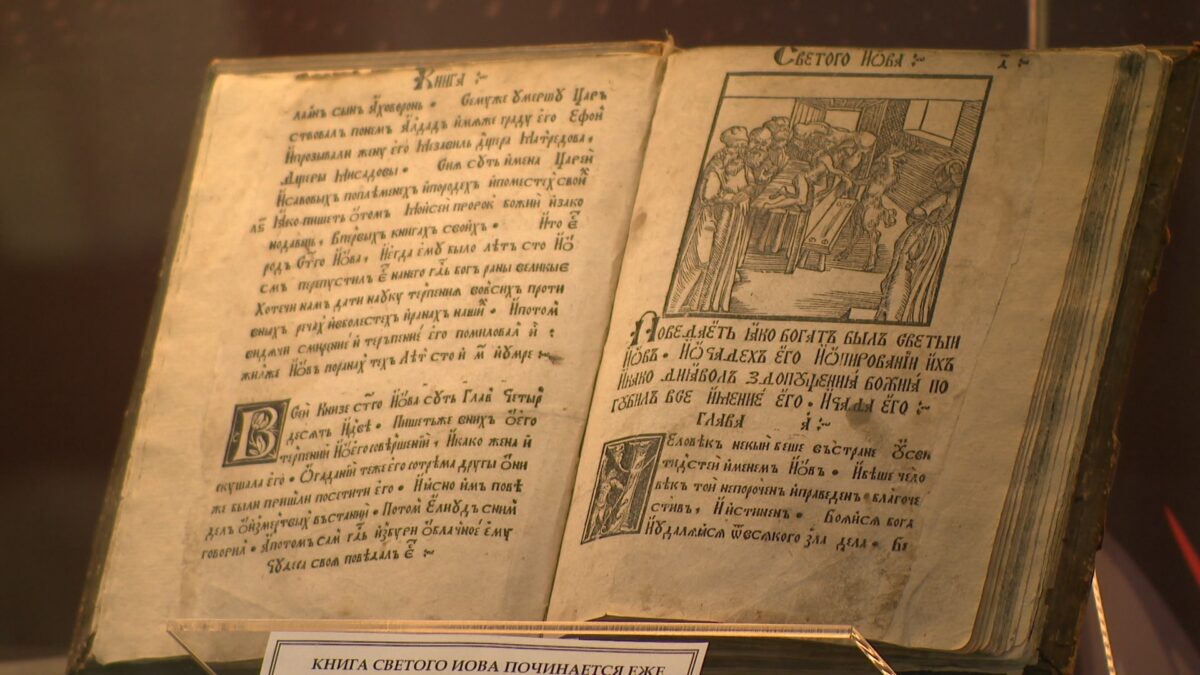 Книга :~
лаин сын аховоронь • Семуже умершу царь
ствовалъ понем Алдад имяже граду его Ефои
Ипрозывали жену его Мезавиль дщера Матредова,
Дщеры Мисадовы • Сия суть имена Царей
Исавовых поплеменех ипородех ипоместех свои
Яко пишеть ѡтом Мойсеи пророк божий изако
нодавець, Впервых книгах своих • Ито Е
род стго Иѡва, Негда ему было лѣт сто Иѡ
смъ перепустил нанего гдь бог раны великые
Хотечи нам дати науку терпения вовсих проти
вных речах иболестех иранах наши • Ипотом
видячи смирение и терпение его помиловал и :
жилже Иѡв поранах тех Лѣт сто и м иумре :~
Всей Книзе стго Иѡва суть Глав Четыр
десять идвѣ • Пишетьже вних ѡего
терпении Иѡего совершении, Икако жена и
скушала его • Ѡгадании теже его сотрема другы ѡни
же были пришли посетити его • Иясно имъ повѣ
дел ѡизмертвых въстании • Потом Елиуд сним
говорил • Япотомъ сам гдь избури ѡблачное ему
Чудеса своя повѣдалъ Е :~
Светого Иѡва :~
а :~
Поведаеть яко богат был светыи
Иѡвъ • Иѡчадех его Иѡпировании их
Икако диявол здопущения божия по
губилъ все имение его • Ичада его :~
глава а :~
Человѣкъ некый беше въстране Ѹсен
тидстей именемъ Иѡвъ • Ибѣше чело
вѣкъ той непорочен иправеден • благоче
стивъ, Иистинен • Бояйся бога
Иудаляйся ѿвсякого зла дела • Бѣ
КНИГА СВЕТОГО ИОВА ПОЧИНАЕТСЯ ЕЖЕ